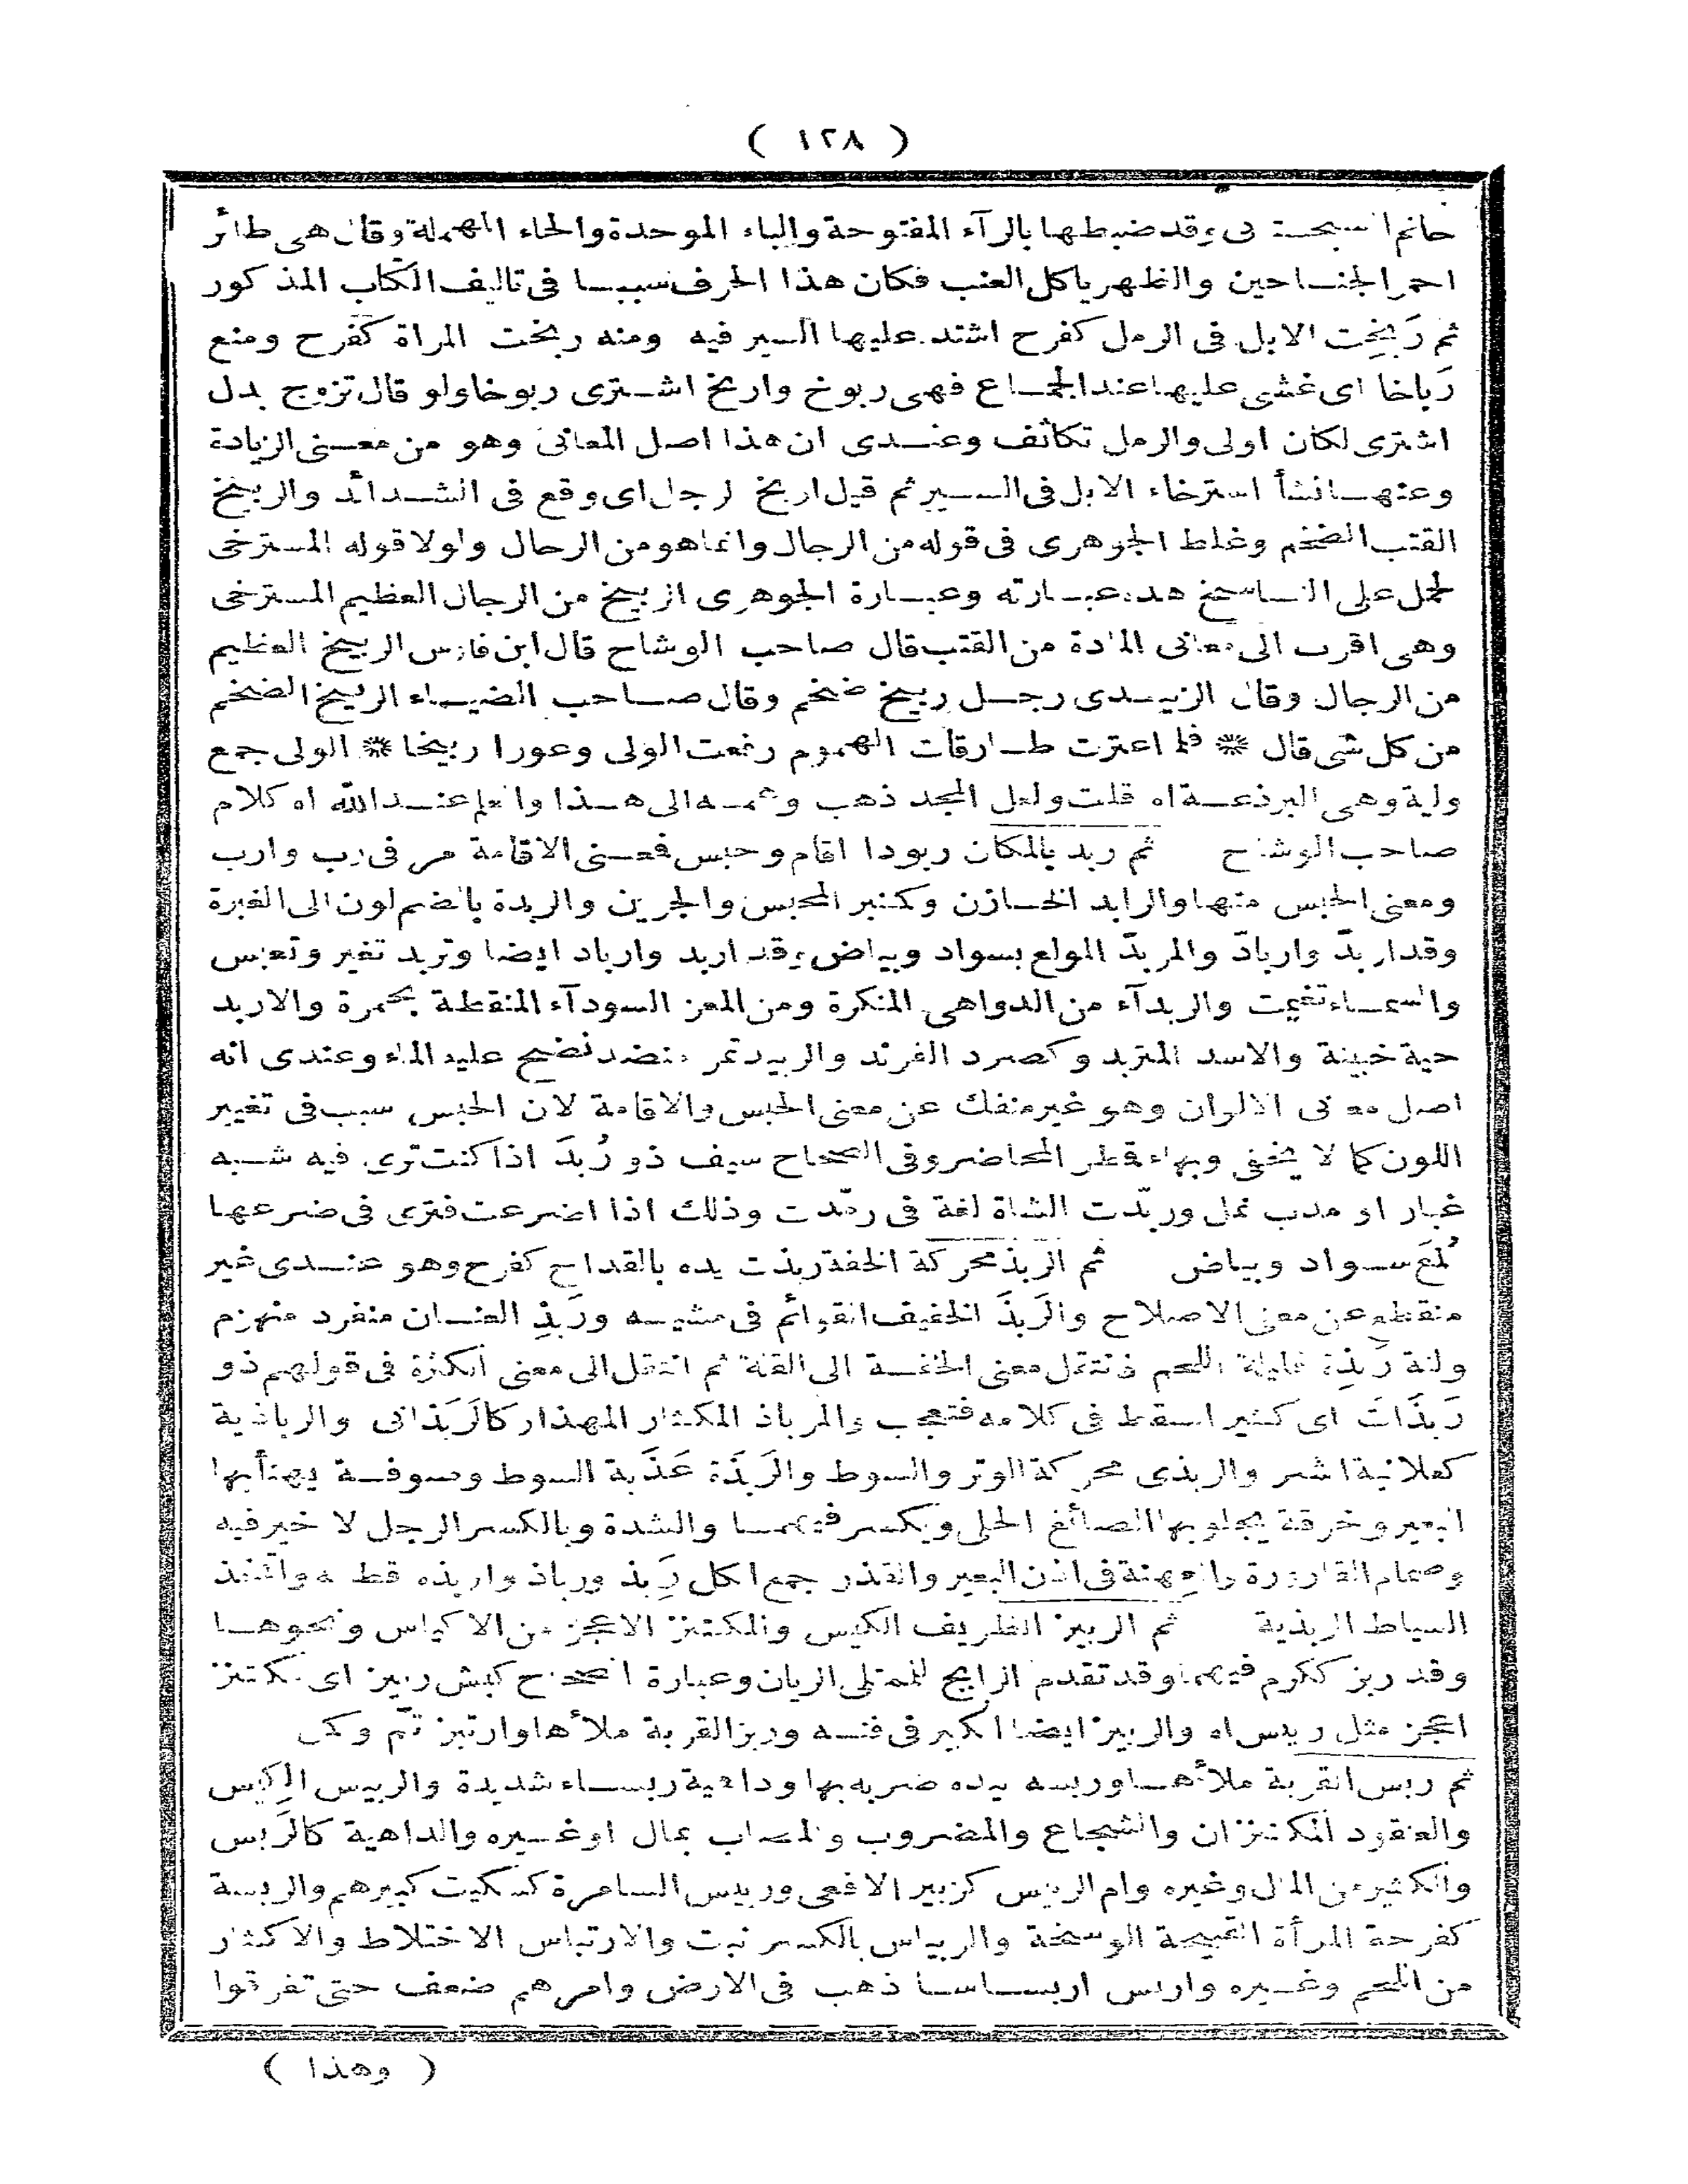 ( ١٢٨ )
حاتم السجستانى وقد ضبطها بالرآء المفتوحة والباء الموحدة والحاء المهملة وقال هى طائر
احمر الجنـاحين والظهر ياكل العنب فكان هذا الحرف سببـا فى تاليف الكتاب المذكور
ثم رَبِخت الابل فى الرمل كفرح اشتد عليها السير فيه ومنه ربخت المراة كفرح ومنع
رَباخا اى غشى عليها عند الجمـاع فهى ربوخ واربخ اشـترى ربوخا ولو قال تزوج بدل
اشترى لكان اولى والرمل تكاثف وعنـدى ان هذا اصل المعانى وهو من معـنى الزيادة
وعنهـا نشأ استرخاء الابل فى السـير ثم قيل اربخ الرجل اى وقع فى الشـدائد والربيخ
القتب الضخم وغلط الجوهرى فى قوله من الرجال وانما هو من الرحال ولولا قوله المسترخى
لحمل على النـاسخ هذه عبـارته وعبـارة الجوهرى الربيخ من الرجال العظيم المسترخى
وهى اقرب الى معانى المادة من القتب قال صاحب الوشاح قال ابن فارس الربيخ العظيم
من الرجال وقال الزبيـدى رجـل ربيخ ضخم وقال صـاحب الضيـاء الربيخ الضخم
من كل شى قال * فلما اعترت طـارقات الهموم رفعت الولى وعورا ربيخا * الولى جمع
ولية وهى البرذعـة اه قلت ولعل المجد ذهب وهمـه الى هـذا والعلم عنـد الله اه كلام
صاحب الوشاح ثم ربد بالمكان ربودا اقام وحبس فعـنى الاقامة مر فى رب وارب
ومعنى الحبس منها والرابد الخـازن وكنبر المحبس والجرين والربدة بالضم لون الى الغبرة
وقد اربدّ واربادّ والمربدّ المولع بسواد وبياض وقد اربد وارباد ايضا وتربد تغير وتعبس
والسمـاء تغيمت والربدآء من الدواهى المنكرة ومن المعز السودآء المنقطة بحمرة والاربد
حية خبيثة والاسد المتربد وكصرد الفرند والربيد تمر منضد نضح عليه الماء وعندى انه
اصل معانى الالوان وهو غير منفك عن معنى الحبس والاقامة لان الحبس سبب فى تغيير
اللون كما لا يخفى وبهاء قطر المحاضر وفى الصحاح سيف ذو رُبَدَ اذا كنت ترى فيه شـبه
غبار او مدب نمل وربّدت الشاة لغة فى رمّدت وذلك اذا اضرعت فترى فى ضرعها
لُمَع سـواد وبياض ثم الربذ محركة الخفة ربذت يده بالقداح كفرح وهو عنـدى غير
منقطع عن معنى الاصلاح والرَبذَ الخفيف القوائم فى مشيـه ورَبِذ العنـان منفرد منهزم
ولثة رَبِذة قليلة اللحم فانتقل معنى الخفـة الى القلة ثم انتقل الى معنى الكثرة فى قولهم ذو
رَبَذَات اى كثير السقط فى كلامه فتعجب والمرباذ المكثار المهذار كالرَبَذانى والرباذية
كعلانية الشر والربذى محركة الوتر والسوط والرَبَذَة عَذَبة السوط وصوفـة يهنأ بها
البعير وخرقة يجلو بها الصائغ الحلى ويكسر فيهمـا والشدة وبالكسر الرجل لا خير فيه
وصمام القارورة والعهنة فى اذن البعير والقذر جمع الكل رِبَذ ورباذ واربذه قطعه واتخذ
السياط الربذية ثم الربيز الظريف الكيس والمكتنز الاعجز من الاكياس ونحوهـا
وقد ربز ككرم فيهما وقد تقدم الرابج للممتلى الريان وعبارة الصحاح كبش ربيز اى مكتنز
اعجز مثل ربيس اه والربيز ايضا الكبير فى فنـه وربز القربة ملأها وارتبز تمّ وكمل
ثم ربس القربة ملأهـا وربسه بيده ضربه بها وداهية ربسـاء شديدة والربيس الكيس
والعنقود المكتنزان والشجاع والمضروب والمصاب بمال او غـيره والداهية كالرَبْس
والكثير من المال وغيره وام الربيس كزبير الافعى وربيس السامرة كسكيت كبيرهم والربسة
كفرحة المرأة القبيحة الوسخة والربباس بالكسر نبت والارتباس الاختلاط والاكتثار
من اللحم وغـيره واربس اربسـاسـا ذهب فى الارض وامرهم ضعف حتى تفرقوا
( وهذا )